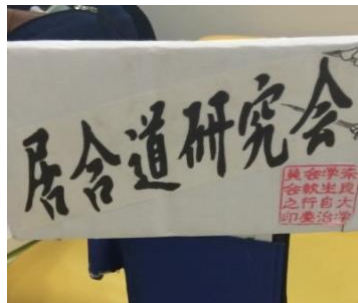 居合道研究会
奈良大学
学生自治
会執行委
員会之印